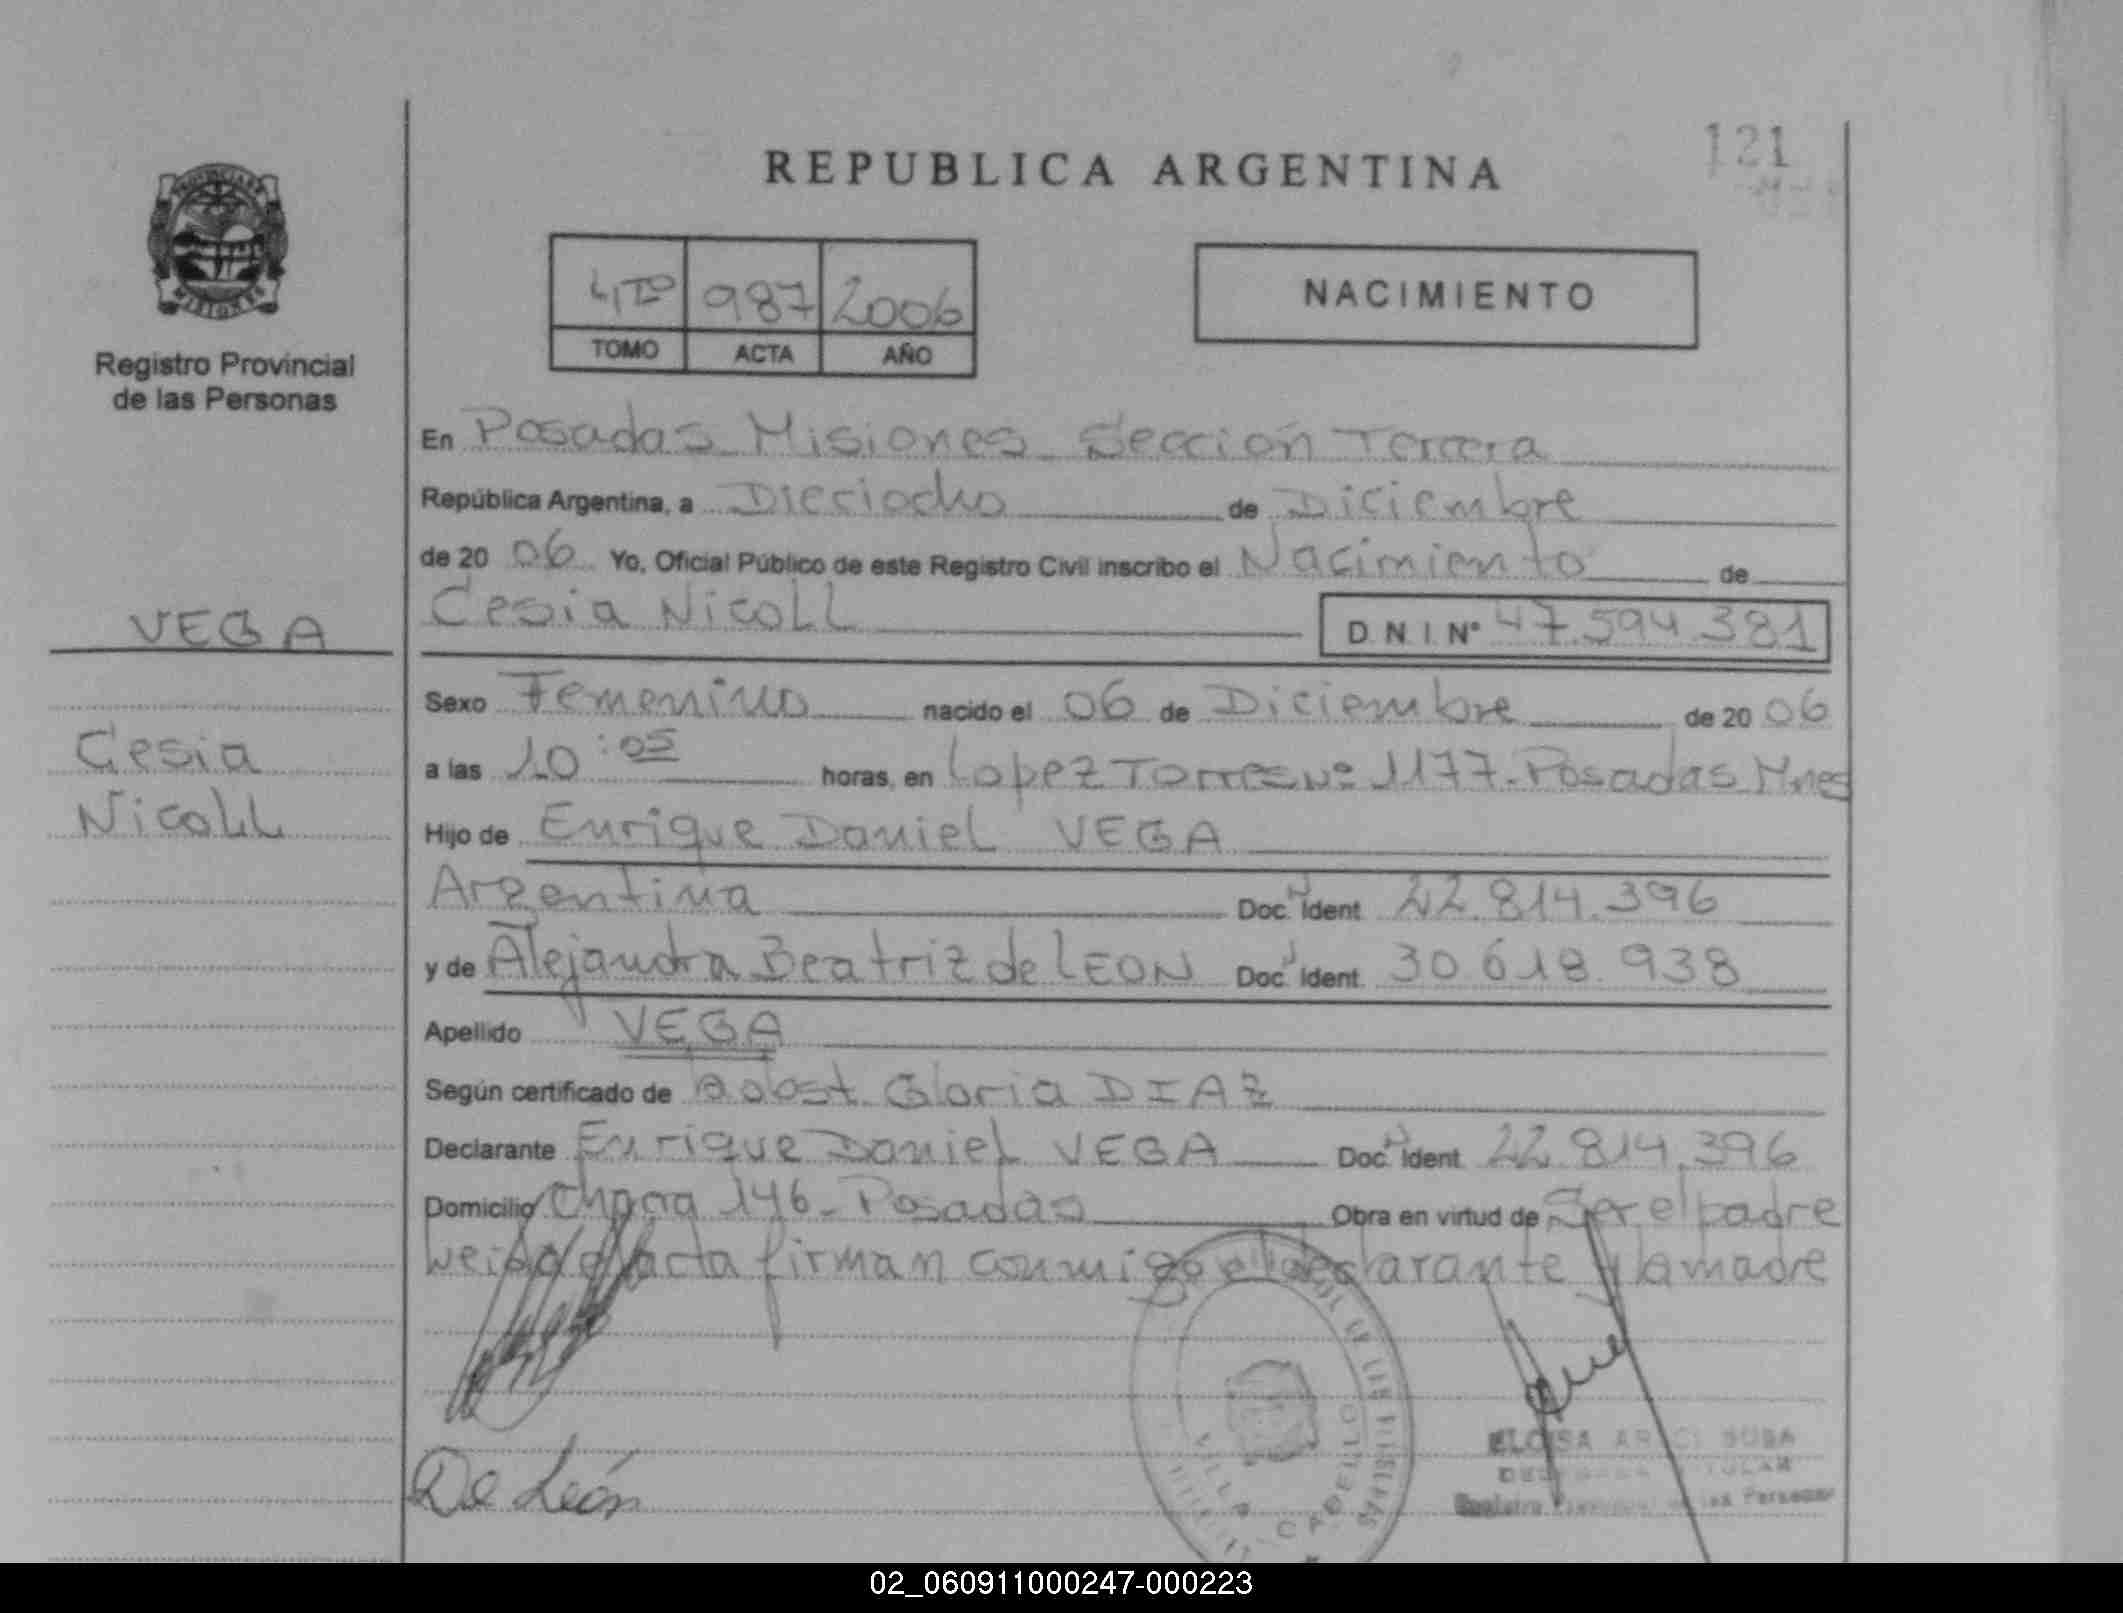 121
REPUBLICA ARGENTINA
PROVINCIA DE
MISIONES
Registro Provincial
de las Personas
4to 987 2006
TOMO ACTA AÑO
NACIMIENTO
En Posadas Misiones Sección Tercera
República Argentina, a Dieciocho de Diciembre
de 20 06 Yo, Oficial Público de este Registro Civil inscribo el Nacimiento de
VEGA
Cesia Nicoll D.N.I.Nº 47.594.381
Sexo Femenino nacido el 06 de Diciembre de 20 06
Cesia
a las 10:05 horas, en Lopez Torres Nº 1177-Posadas Mnes
Nicoll
Hijo de Enrique Daniel VEGA
Argentina Doc. Ident. 22.814.396
y de Alejandra Beatriz de LEON Doc. Ident. 30.618.938
Apellido VEGA
Según certificado de Obst. Gloria DIAZ
Declarante Enrique Daniel VEGA Doc. Ident. 22.814.396
Domicilio Chacra 146-Posadas Obra en virtud de Ser el padre
Leida el acta firman conmigo el declarante y la madre
VILLA CABELLO
ELOISA
De León
02_060911000247-000223